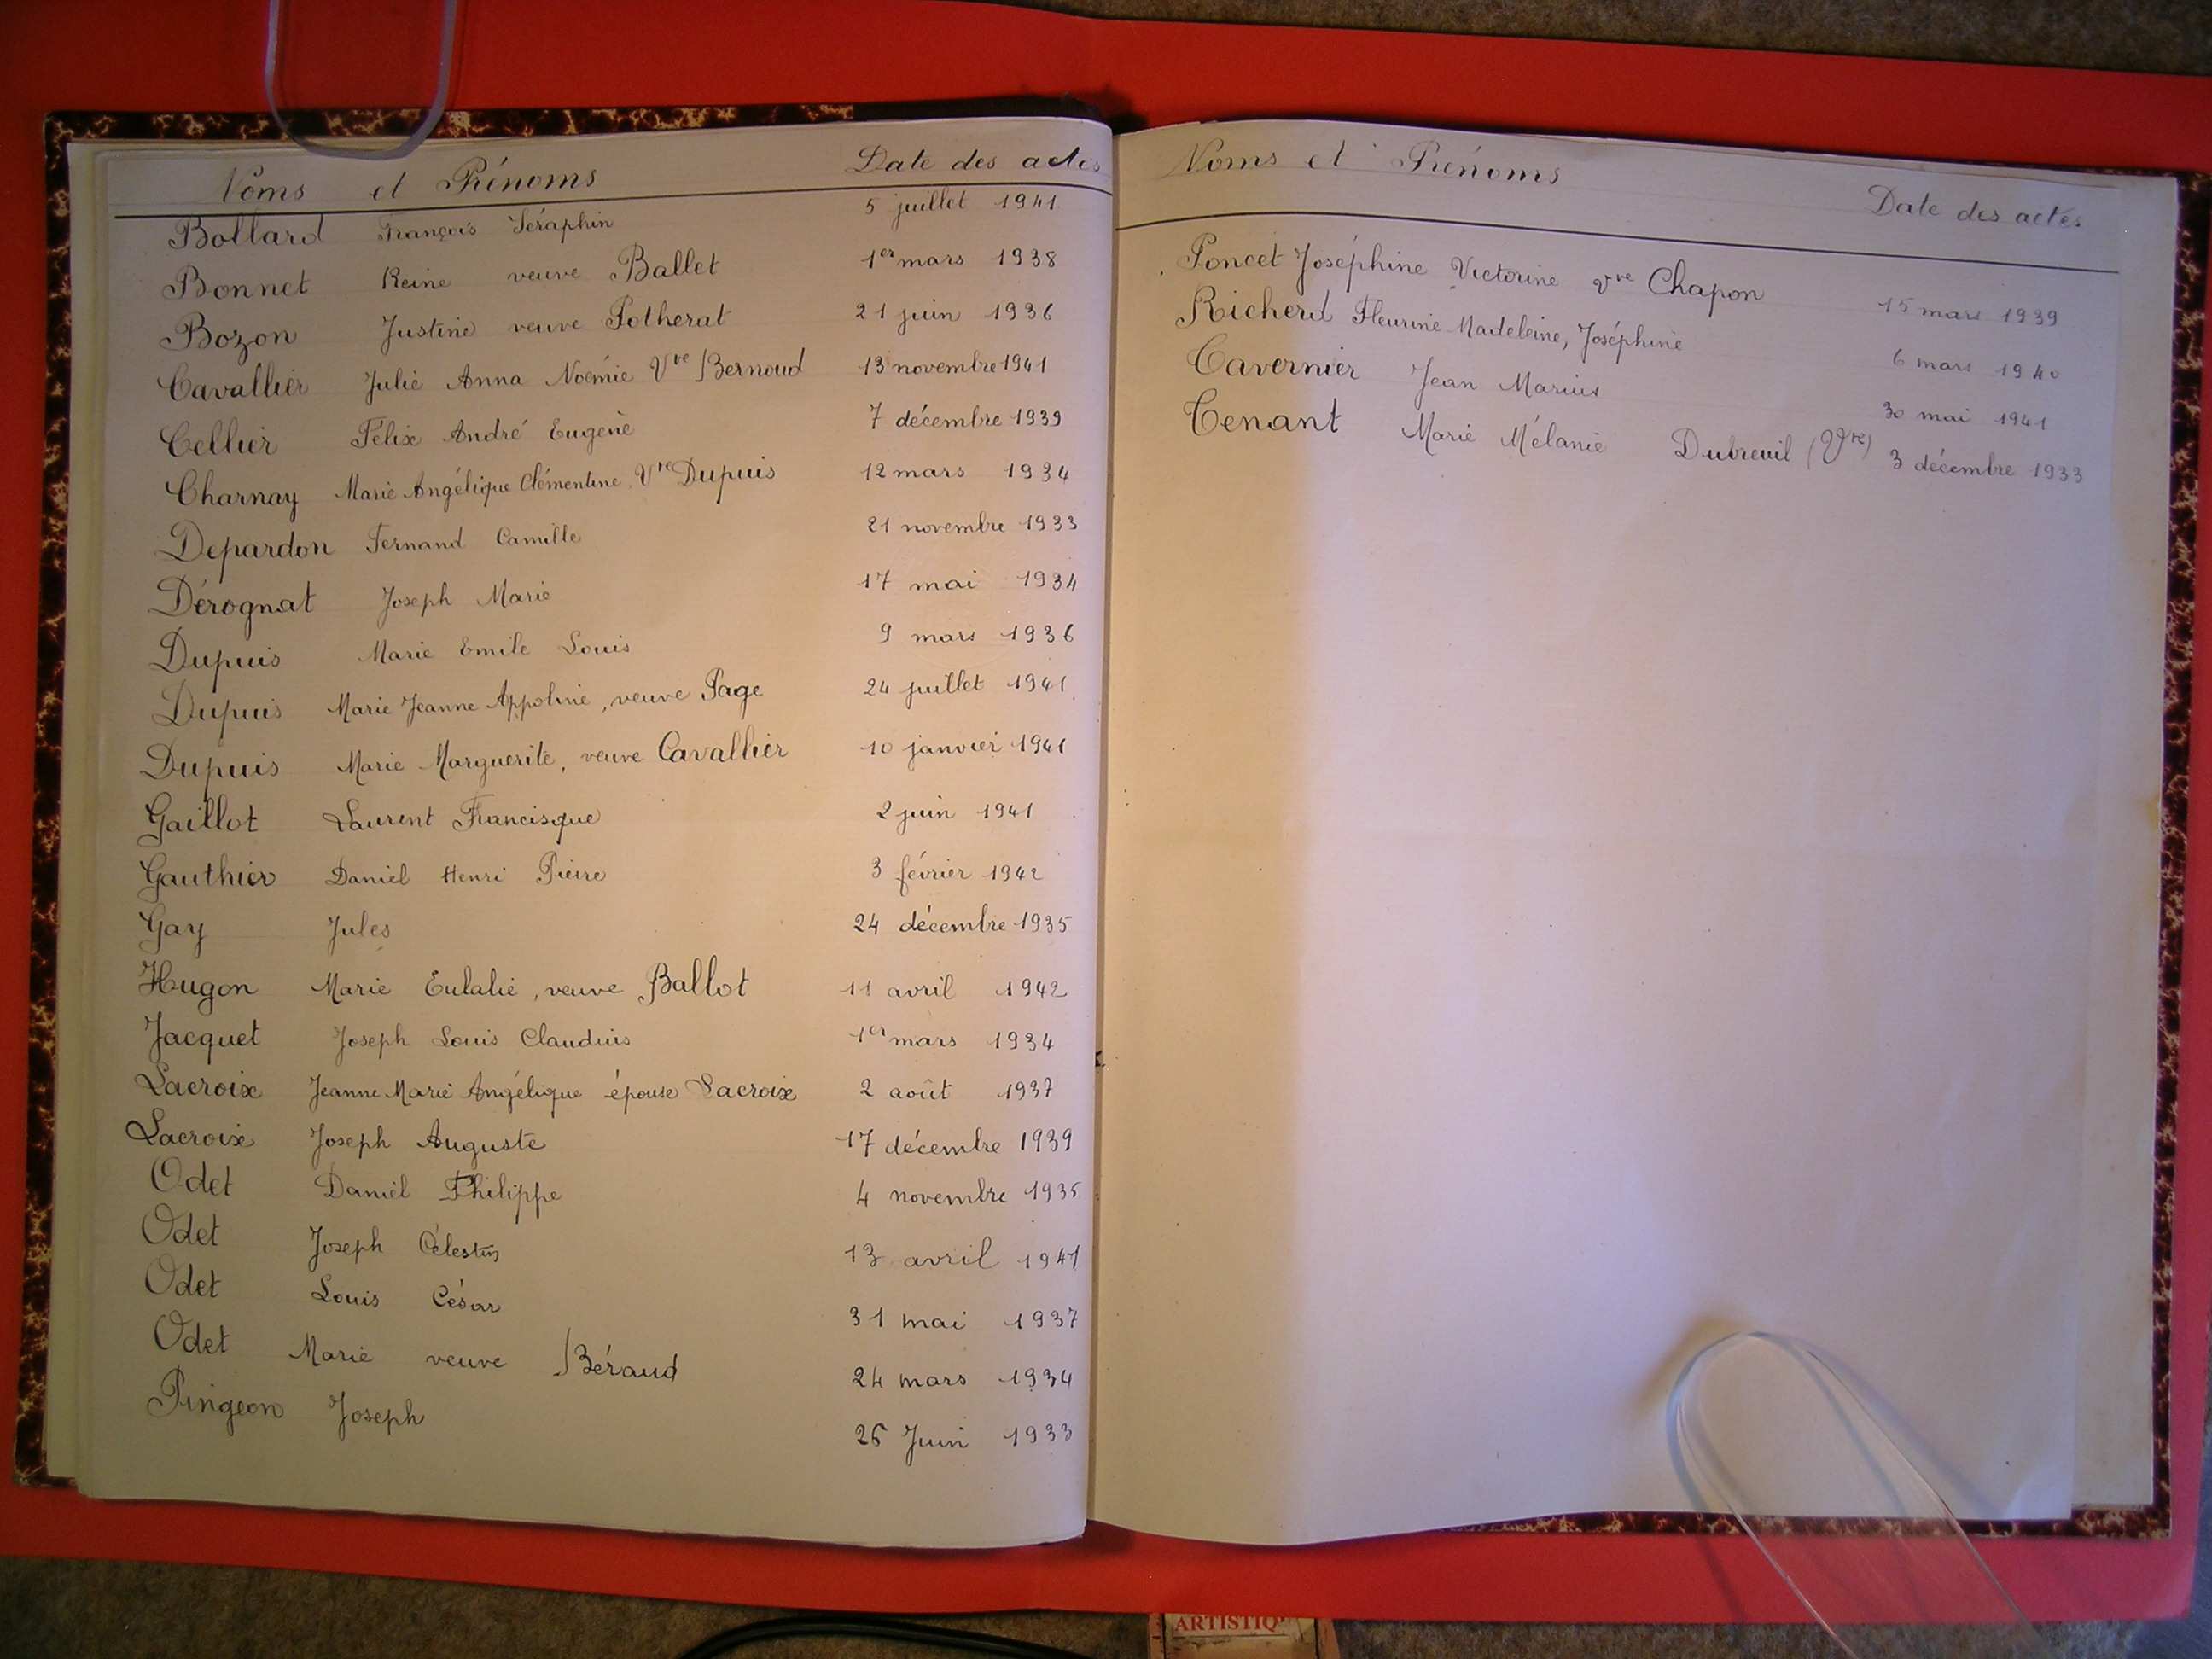 Noms et Prénoms Date des actes
Bollard François Séraphin 5 juillet 1941
Bonnet Reine veuve Ballet 1er mars 1938
Bozon Justine veuve Potherat 21 juin 1936
Cavallier Julie Anna Noémie Vve Bernoud 13 novembre 1941
Cellier Félix André Eugène 7 décembre 1939
Charnay Marie Angélique Clémentine Vve Dupuis 12 mars 1934
Depardon Fernand Camille 21 novembre 1933
Dérognat Joseph Marie 17 mai 1934
Dupuis Marie Emile Louis 9 mars 1936
Dupuis Marie Jeanne Appoline, veuve Page 24 juillet 1941
Dupuis Marie Marguerite, veuve Cavallier 10 janvier 1941
Gaillot Laurent Francisque 2 juin 1941
Gauthier Daniel Henri Pierre 3 février 1942
Gay Jules 24 décembre 1935
Hugon Marie Eulalie, veuve Ballot 11 avril 1942
Jacquet Joseph Louis Claudius 1er mars 1934
Lacroix Jeanne Marie Angélique épouse Lacroix 2 août 1937
Lacroix Joseph Auguste 17 décembre 1939
Odet Daniel Philippe 4 novembre 1935
Odet Joseph Célestin 13 avril 1941
Odet Louis César 31 mai 1937
Odet Marie veuve Béraud 24 mars 1934
Pingeon Joseph 26 Juin 1933
Noms et Prénoms Date des actes
Poncet Joséphine Victorine vve Chapon 15 mars 1939
Richerd Fleurine Madeleine, Joséphine 6 mars 1940
Tavernier Jean Marius 30 mai 1941
Tenant Marie Mélanie Dubreuil (Vve) 3 décembre 1933
ARTISTIQ